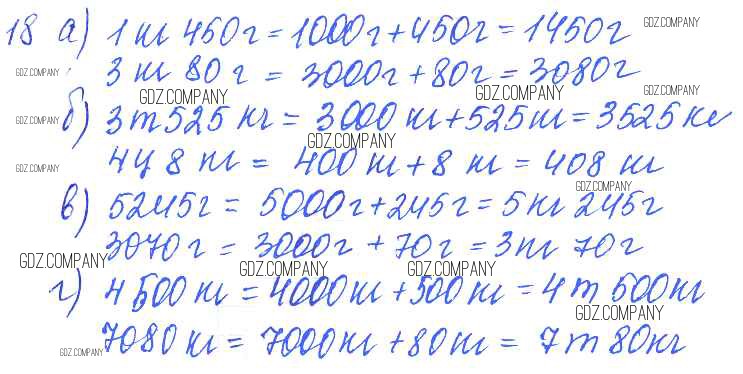 18 а) 1 кг 450 г = 1000 г + 450 г = 1450 г
GDZ.COMPANY
3 кг 80 г = 3000 г + 80 г = 3080 г
GDZ.COMPANY
GDZ.COMPANY GDZ.COMPANY GDZ.COMPANY
б) 3 т 525 кг = 3000 кг + 525 кг = 3525 кг
GDZ.COMPANY
GDZ.COMPANY
4 ц 8 кг = 400 кг + 8 кг = 408 кг
GDZ.COMPANY
GDZ.COMPANY
в) 5245 г = 5000 г + 245 г = 5 кг 245 г
3070 г = 3000 г + 70 г = 3 кг 70 г
GDZ.COMPANY GDZ.COMPANY GDZ.COMPANY
г) 4 500 кг = 4000 кг + 500 кг = 4 т 500 кг
GDZ.COMPANY
7080 кг = 7000 кг + 80 кг = 7 т 80 кг
GDZ.COMPANY